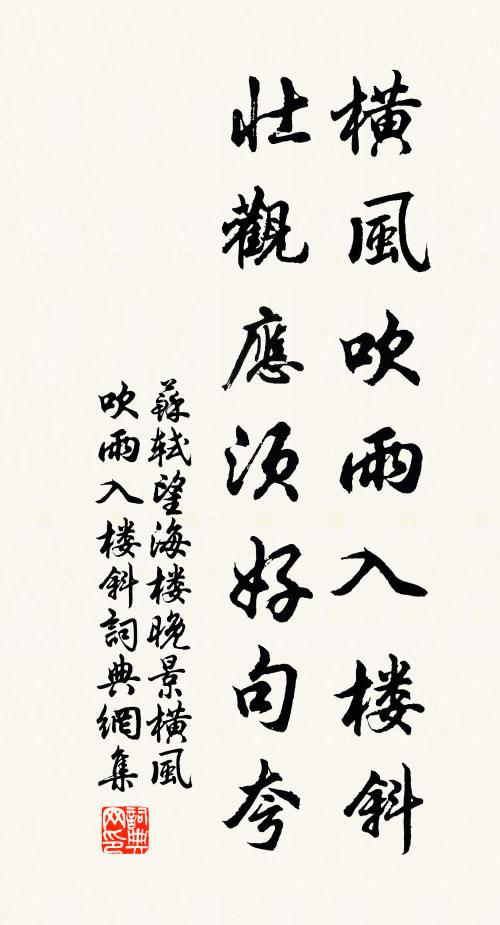 橫風吹雨入楼斜
壯觀應須好句夸
蘇軾望海楼晚景橫風
吹雨入楼斜詞典網集
詞典
网印